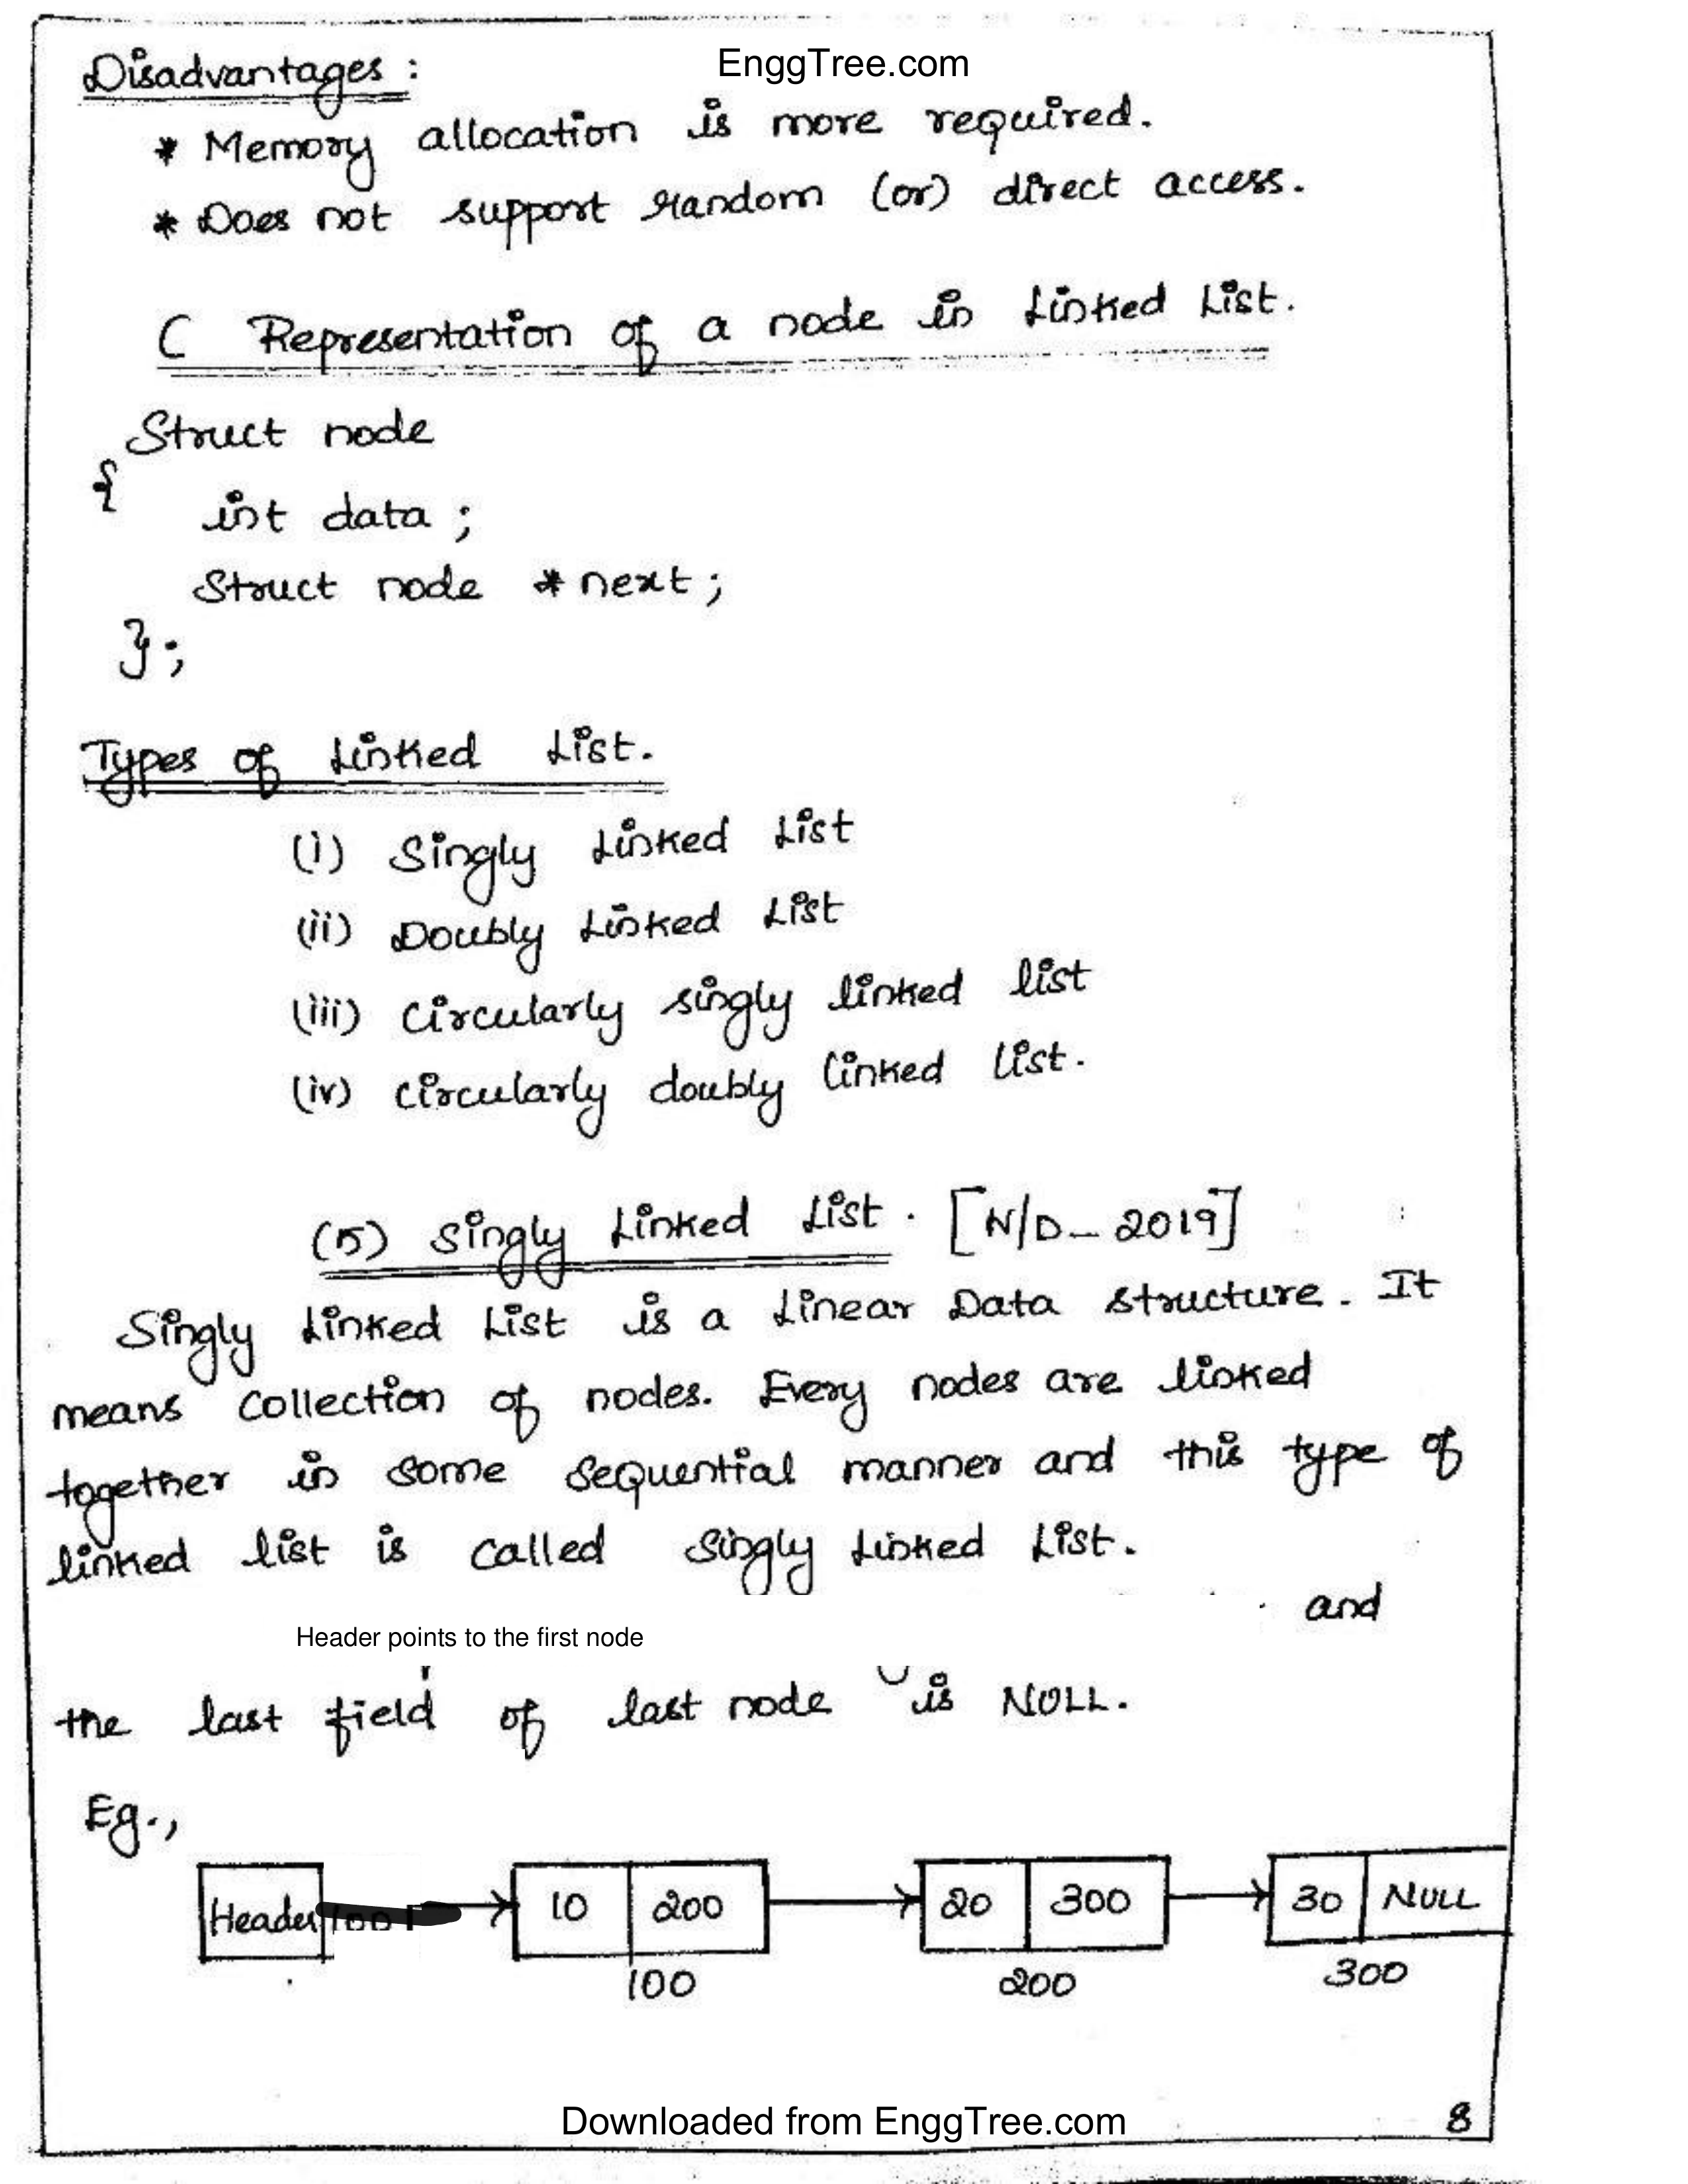 EnggTree.com
Disadvantages :
* Memory allocation is more required.
* Does not support random (or) direct access.
C Representation of a node in Linked List.
Struct node
{
int data ;
Struct node *next ;
} ;
Types of Linked List.
(i) Singly Linked List
(ii) Doubly Linked List
(iii) Circularly singly linked list
(iv) Circularly doubly linked list.
(5) Singly Linked List . [N/D - 2019]
Singly Linked List is a Linear Data structure. It
means collection of nodes. Every nodes are linked
together in some sequential manner and this type of
linked list is called Singly Linked List.
and
Header points to the first node
the last field of last node is NULL.
Eg.,
Header 10 200 20 300 30 NULL
100 200 300
Downloaded from EnggTree.com 8